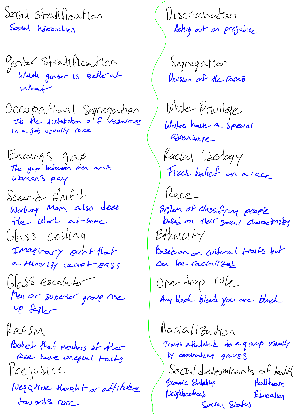 Social Stratification
Social hierarchies
Gender Stratification
Which gender is
Occupational Segregation
is the distribution of
in a job usually race
Earnings gap
The gap between men and
women's pay
Second Shift
Working Moms also does
the at-home
Glass ceiling
Imaginary point that
a minority cannot pass
Glass escalator
Men or superior group move
up faster
Racism
Belief that members of
race have unequal traits
Prejudice
Negative thought or attitudes
towards race
Discrimination
Acting out on prejudice
Segregation
Division of the races
White Privilege
Whites have a special
Racial Ideology
Fixed belief on a race
Race
System of classifying people
based on
Ethnicity
Based on cultural traits but
can be racialized
One-drop rule
Any black blood you are black
Racialization
to a group usually
by dominating groups
Social determinants of health
Economic Stability Healthcare
Neighborhood Education
Social Status